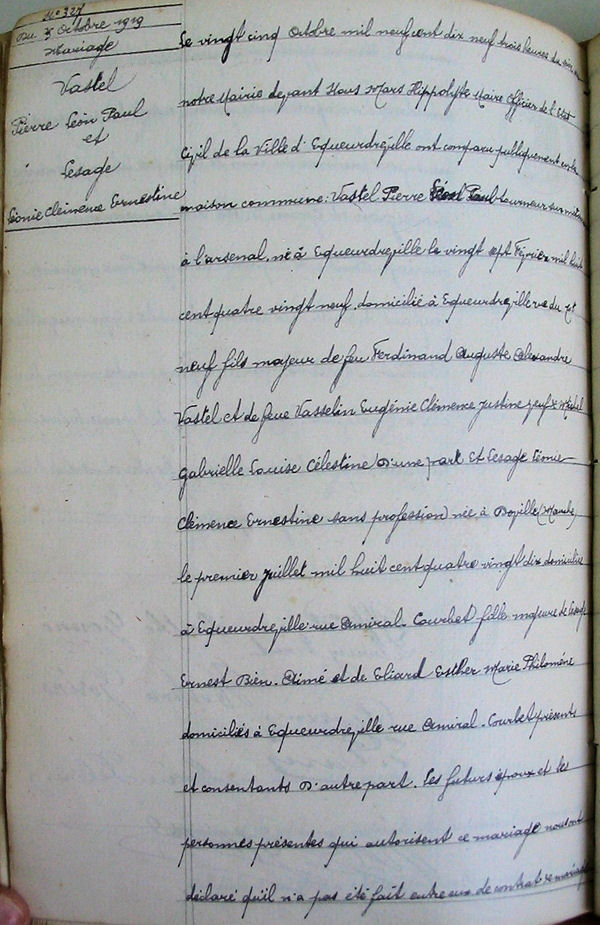 N° 327
Du 25 Octobre 1919
Mariage
Vastel
Pierre Léon Paul
et
Lesage
Léonie Clémence Ernestine
Le vingt cinq Octobre mil neuf cent dix neuf trois heures du soir en
notre Mairie devant Nous Mars Hippolyte Maire Officier de l'Etat
Civil de la Ville d'Equeurdreville ont comparu publiquement en la
maison commune. Vastel Pierre Léon Paul tourneur sur métaux
à l'arsenal, né à Equeurdreville le vingt sept Février mil huit
cent quatre vingt neuf, domicilié à Equeurdreville rue du
neuf fils majeur de feu Ferdinand Auguste Alexandre
Vastel et de feue Vasselin Eugénie Clémence Justine veuf de Michel
Gabrielle Louise Célestine D'une part. Et Lesage Léonie
Clémence Ernestine sans profession née à (Manche)
le premier Juillet mil huit cent quatre vingt dix domiciliée
à Equeurdreville rue Amiral-Courbet fille majeure de Lesage
Ernest Bien-Aimé et de Eliard Esther Marie Philomène
domiciliés à Equeurdreville rue Amiral-Courbet présents
et consentants D'autre part. Les futurs époux et les
personnes présentes qui autorisent ce mariage nous ont
déclaré qu'il n'a pas été fait entre eux de contrat de mariage